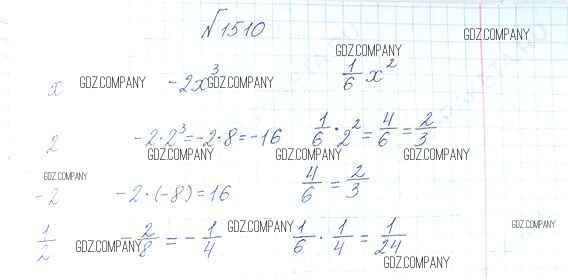 №1510
GDZ.COMPANY
GDZ.COMPANY
x GDZ.COMPANY -2x³ GDZ.COMPANY 1/6 x²
2 -2·2³=-2·8=-16 1/6·2²=4/6=2/3
GDZ.COMPANY GDZ.COMPANY GDZ.COMPANY
-2 -2·(-8)=16 4/6=2/3
1/2 GDZ.COMPANY -2/8=-1/4 GDZ.COMPANY 1/6·1/4=1/24 GDZ.COMPANY
GDZ.COMPANY